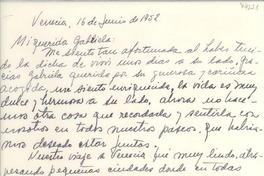 Venecia, 16 de Junio de 1952
Mi querida Gabriela:
Me siento tan afortunada al haber teni-
do la dicha de vivir unos dias a su lado, gra-
cias Gabriela querida por su generosa y cariñosa
acogida, me siento enriquecida, la vida es muy
dulce y hermosa a su lado, ahora no hace-
mos otra cosa que recordarla y sentirla con
nosotros en todos nuestros paseos, que habria-
mos deseado estar juntas.
Nuestro viaje a Venecia fué muy lindo, atra-
vesando pequeñas ciudades donde en todas